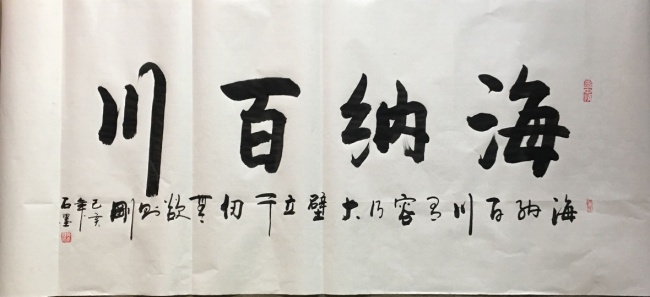 海纳百川
海纳百川有容乃大壁立千仞無欲则剛
己亥年
石墨